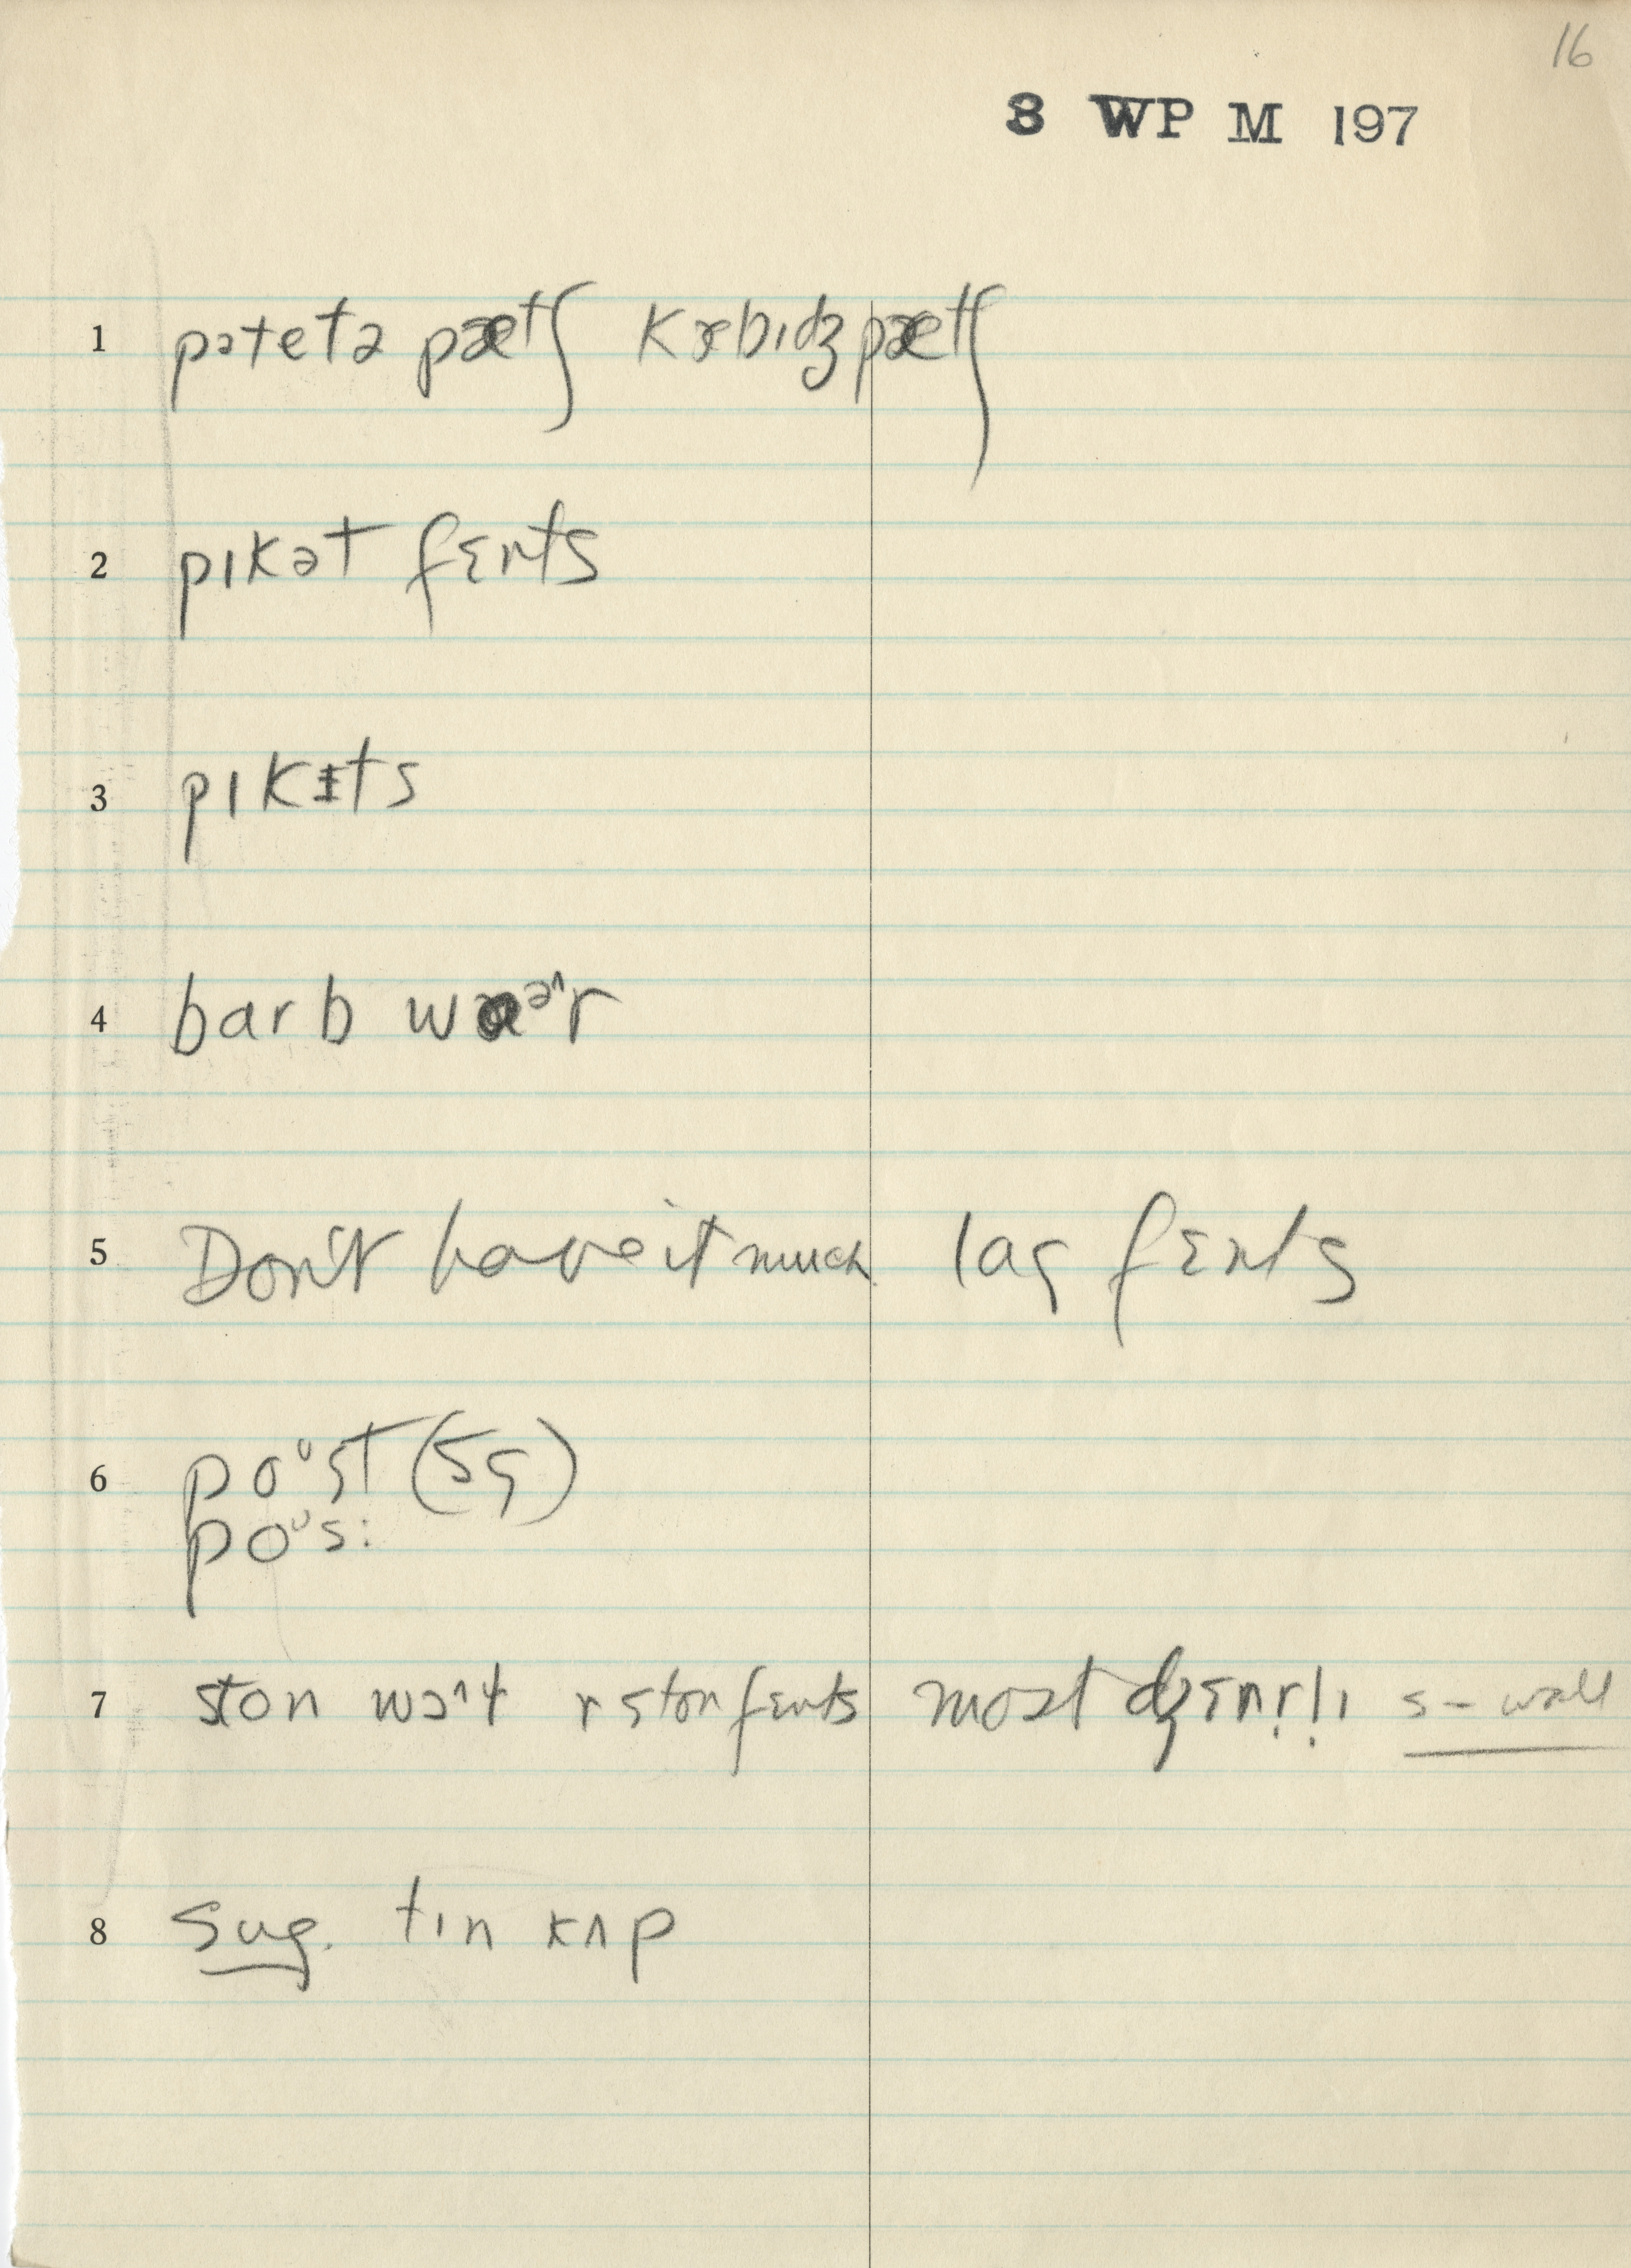 16
8 WP M 197
1 pətetə pætʃ kæbɪdʒ pætʃ
2 pɪkət fɛnts
3 pɪkɪts
4 barb waᵊ^r
5 Don't have it much lag fɛnts
6 poᶷst (sg)
poᶷs:
7 ston wɔ^ɫ r ston fɛnts most dʒɛnr!ɪ s – wall
8 sug. tɪn kʌp